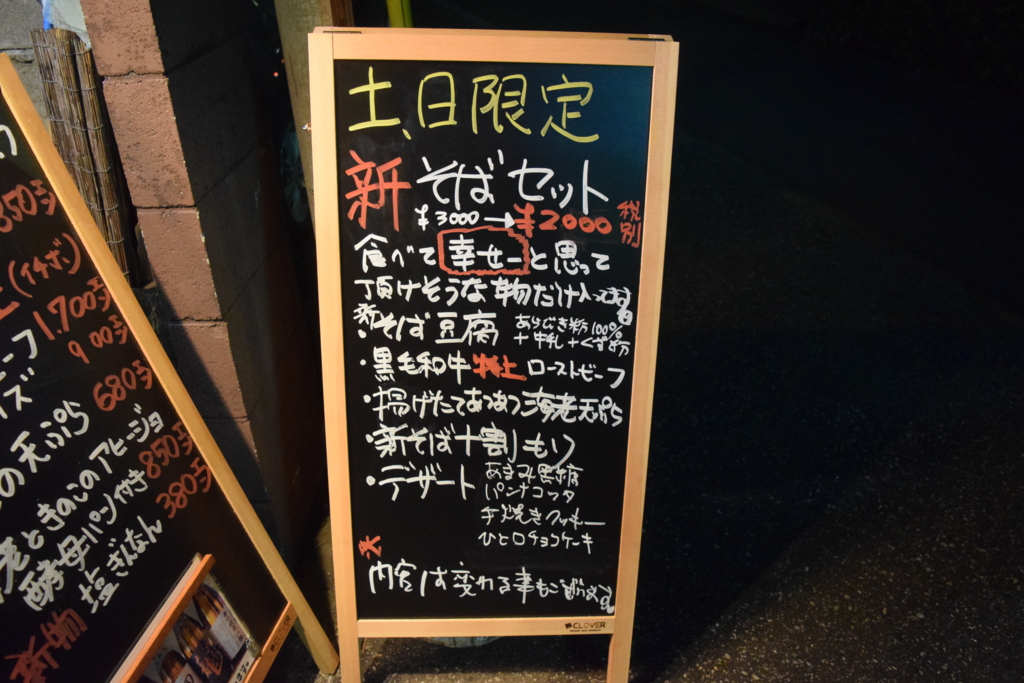 土、日限定
新そばセット
¥3000→¥2000税別
食べて幸せーと思って
頂けそうな物だけ入ってます
・新そば豆腐 あらびき粉100%
+牛乳+くず粉
・黒毛和牛特上ローストビーフ
・揚げたてあつあつ海老天ぷら
・新そば十割もり
・デザート あまみ黒糖
パンナコッタ
手焼きクッキー
ひと口チョコケーキ
内容は変わる事もございます
CLOVER
850
(イチボ)
1,700
900
680
の天ぷら
老ときのこのアヒージョ
850
酵母パン付き
380
塩ぎんなん